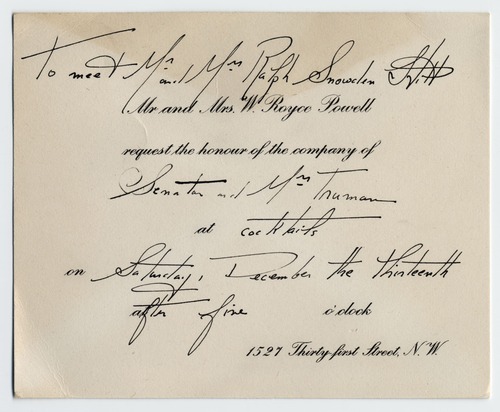 To meet Mr and Mrs Ralph Snowden Hill
Mr and Mrs. W. Royce Powell
request the honour of the company of
Senator and Mrs Truman
at cocktails
on Saturday, December the thirteenth
after five o'clock
1527 Thirty-first Street, N.W.